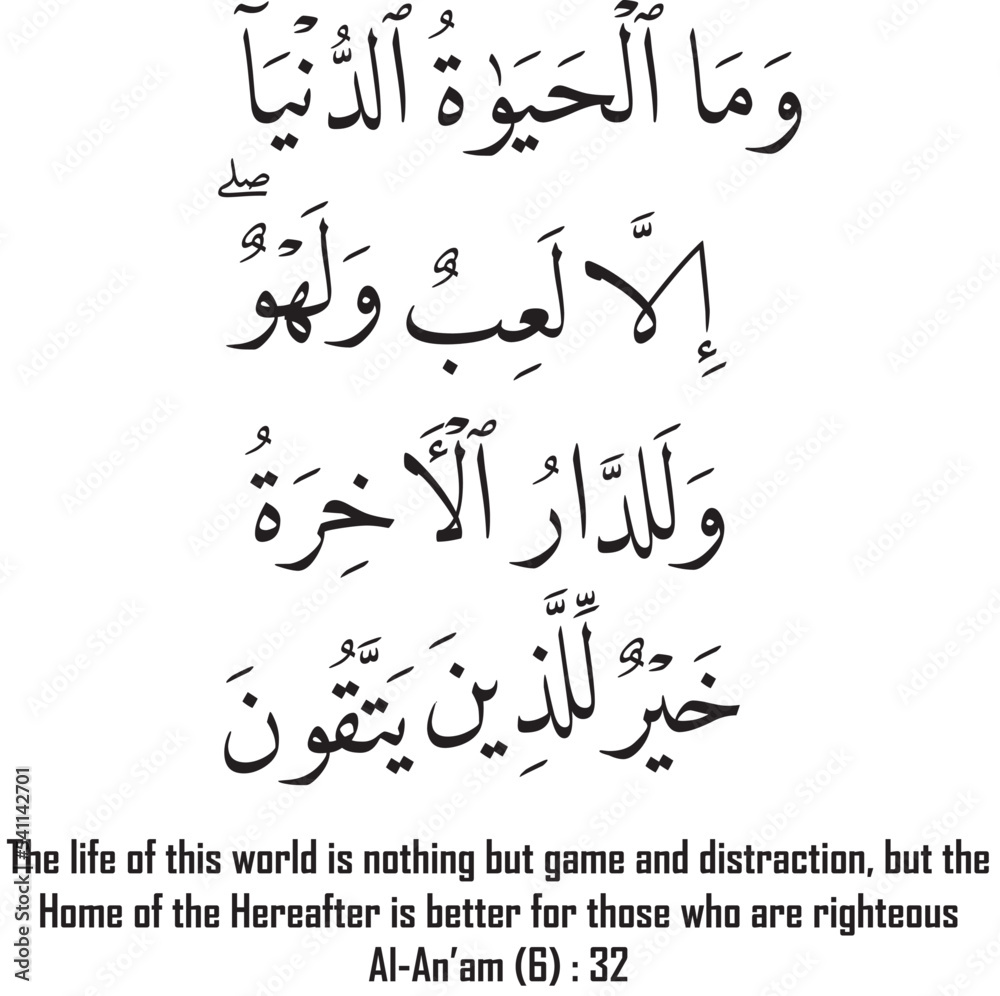 وَمَا ٱلْحَيَوٰةُ ٱلدُّنْيَآ
إِلَّا لَعِبٌ وَلَهْوٌ ۖ
وَلَلدَّارُ ٱلْأَخِرَةُ
خَيْرٌ لِّلَّذِينَ يَتَّقُونَ
The life of this world is nothing but game and distraction, but the
Home of the Hereafter is better for those who are righteous
Al-An’am (6) : 32
Adobe Stock